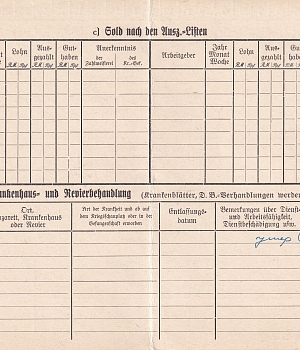 c) Sold nach den Ausz.-Listen
Lohn
Aus-
gezahlt
Gut-
haben
Anerkenntnis
der
Zahlmeisterei
des
Kr.-Gef.
Arbeitgeber
Jahr
Monat
Woche
Lohn
Aus-
gezahlt
RM Rpf RM Rpf RM Rpf
RM Rpf RM Rpf
und Revierbehandlung (Krankenblätter, D. B.-Verhandlungen
Ort,
Krankenhaus
oder Revier
Art der Krankheit und ob auf
dem Kriegsschauplatz oder in der
Gefangenschaft erworben
Entlassungs-
datum
Bemerkungen über
und Arbeitsfähigkeit,
Dienstbeschädigung usw.